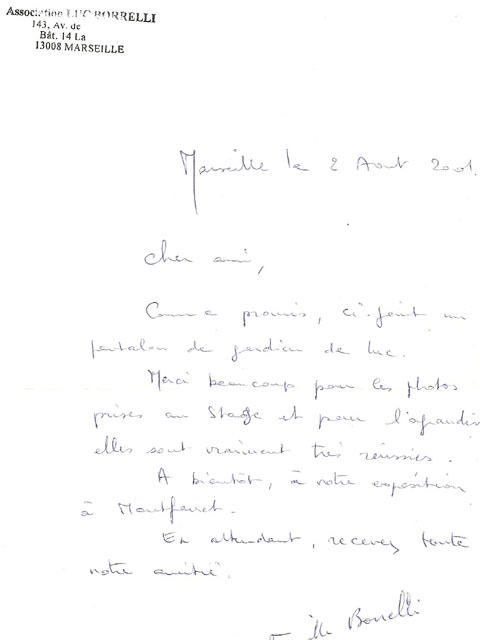 Association LUC BORRELLI
143, Av. de
Bât. 14 La
13008 MARSEILLE
Marseille le 2 Aout 2001.
cher ami,
Comme promis, ci-joint un
pantalon de gardien de Luc.
Merci beaucoup pour les photos
prises au Stage et pour l'
elles sont vraiment très réussies.
A bientôt, à notre exposition
à Montfavet.
En attendant, recevez toute
notre amitié.
Borrelli